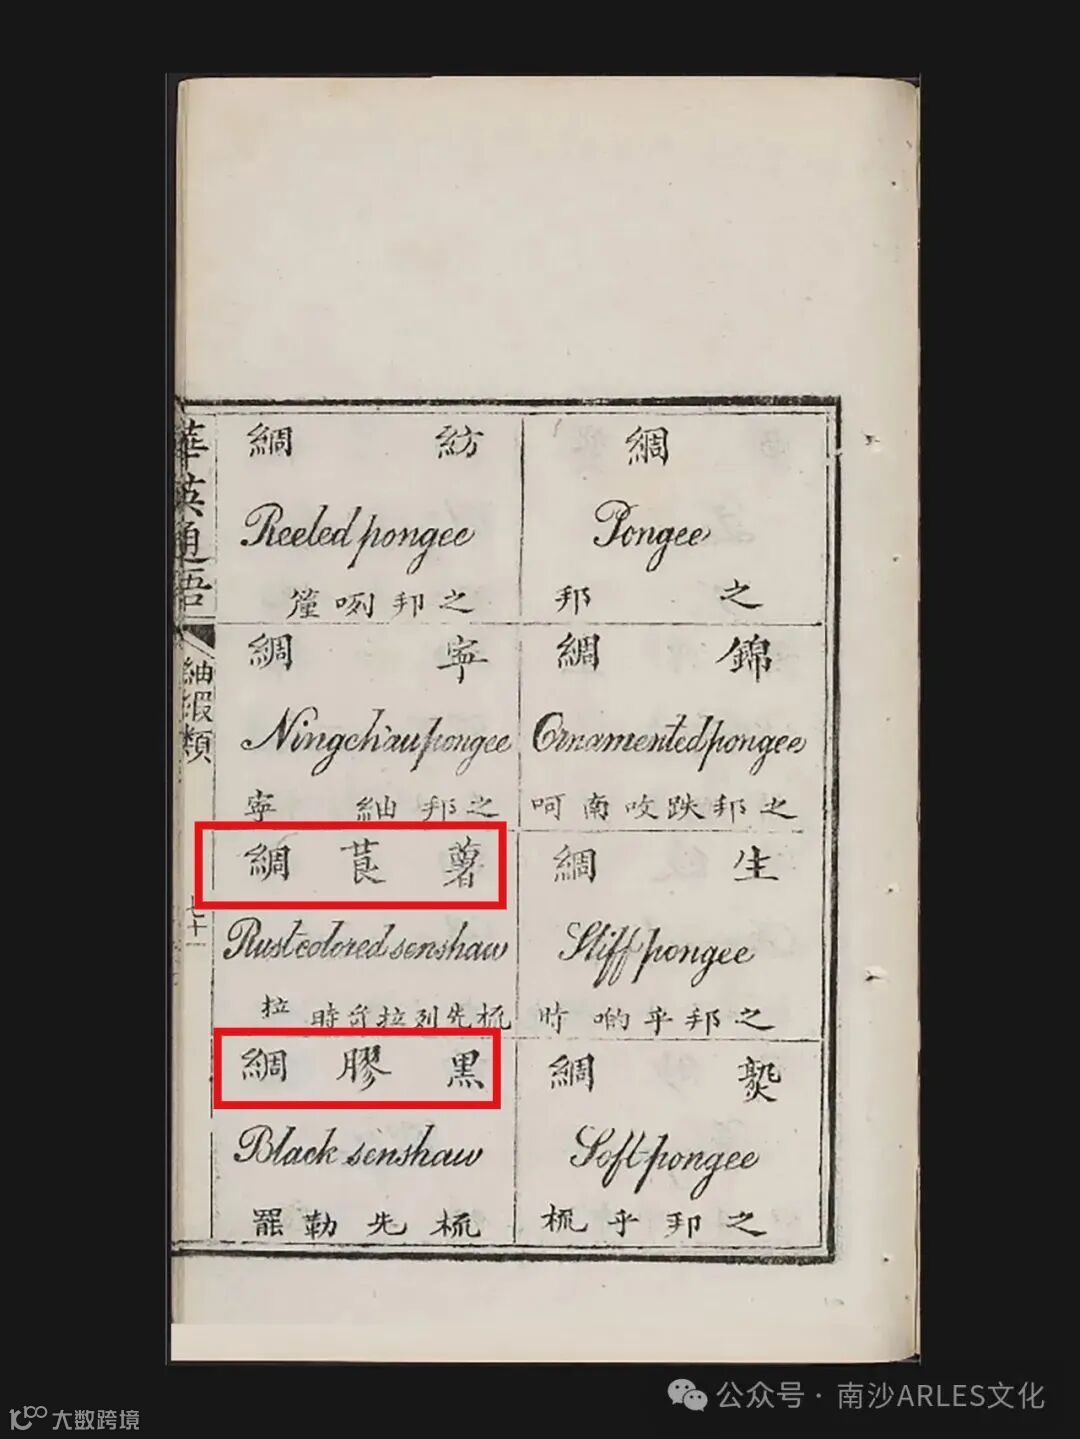 綢
Pongee
邦之
錦綢
Ornamented pongee
呵南呅跌邦之
生綢
Stiff pongee
時啲乎邦之
熟綢
Soft pongee
梳乎邦之
紡綢
Reeled pongee
咧邦之
寧綢
Ningchau pongee
寧紬邦之
薯莨綢
Rust-colored senshaw
拉時拉列先梳
黑膠綢
Black senshaw
罷勒先梳
華英通語
紬緞類
七十一
公众号·南沙ARLES文化
大数跨境